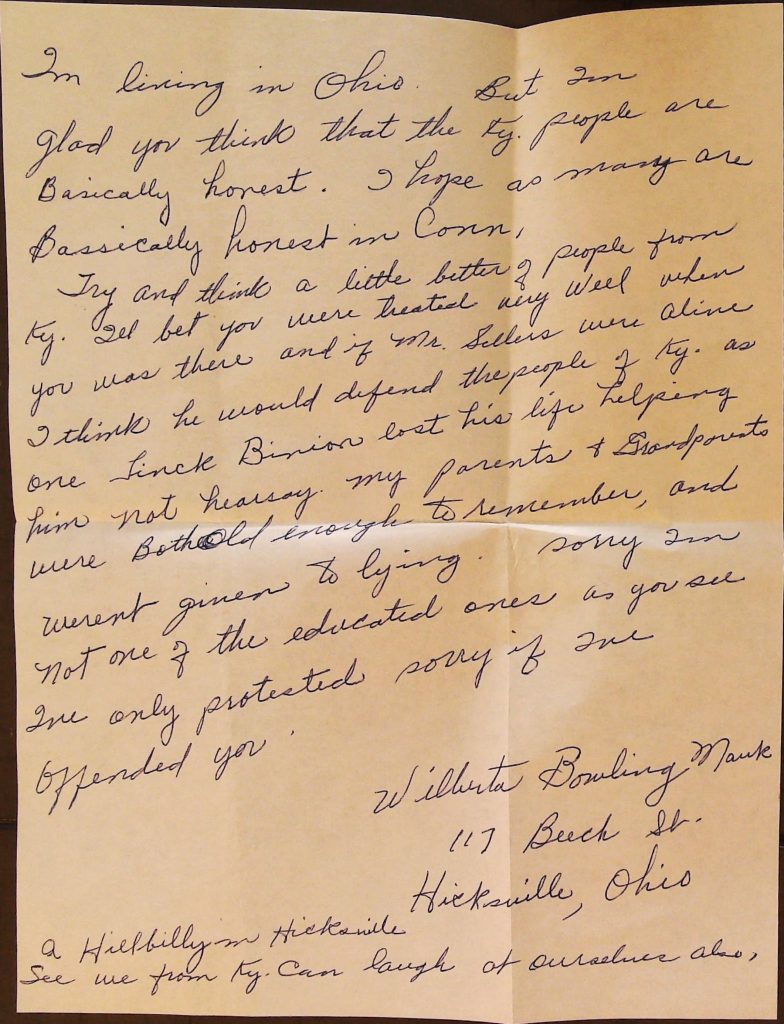 Im living in Ohio. But Im
glad you think that the Ky. people are
Basically honest. I hope as many are
Bassically honest in Conn,
Try and think a little better of people from
Ky. Ill bet you were treated very well when
you was there and if Mr. Sellers were alive
I think he would defend the people of Ky. as
one Linck Binion lost his life helping
him not hearsay. my parents & Grandparents
were Both Old enough to remember, and
werent given to lying. sorry Im
not one of the educated ones as you see
Ive only protested sorry if Ive
Offended you.
Wilberta Bowling Mauk
117 Beech St.
Hicksville, Ohio
a Hillbilly in Hicksville
See we from Ky. Can laugh at ourselves also,